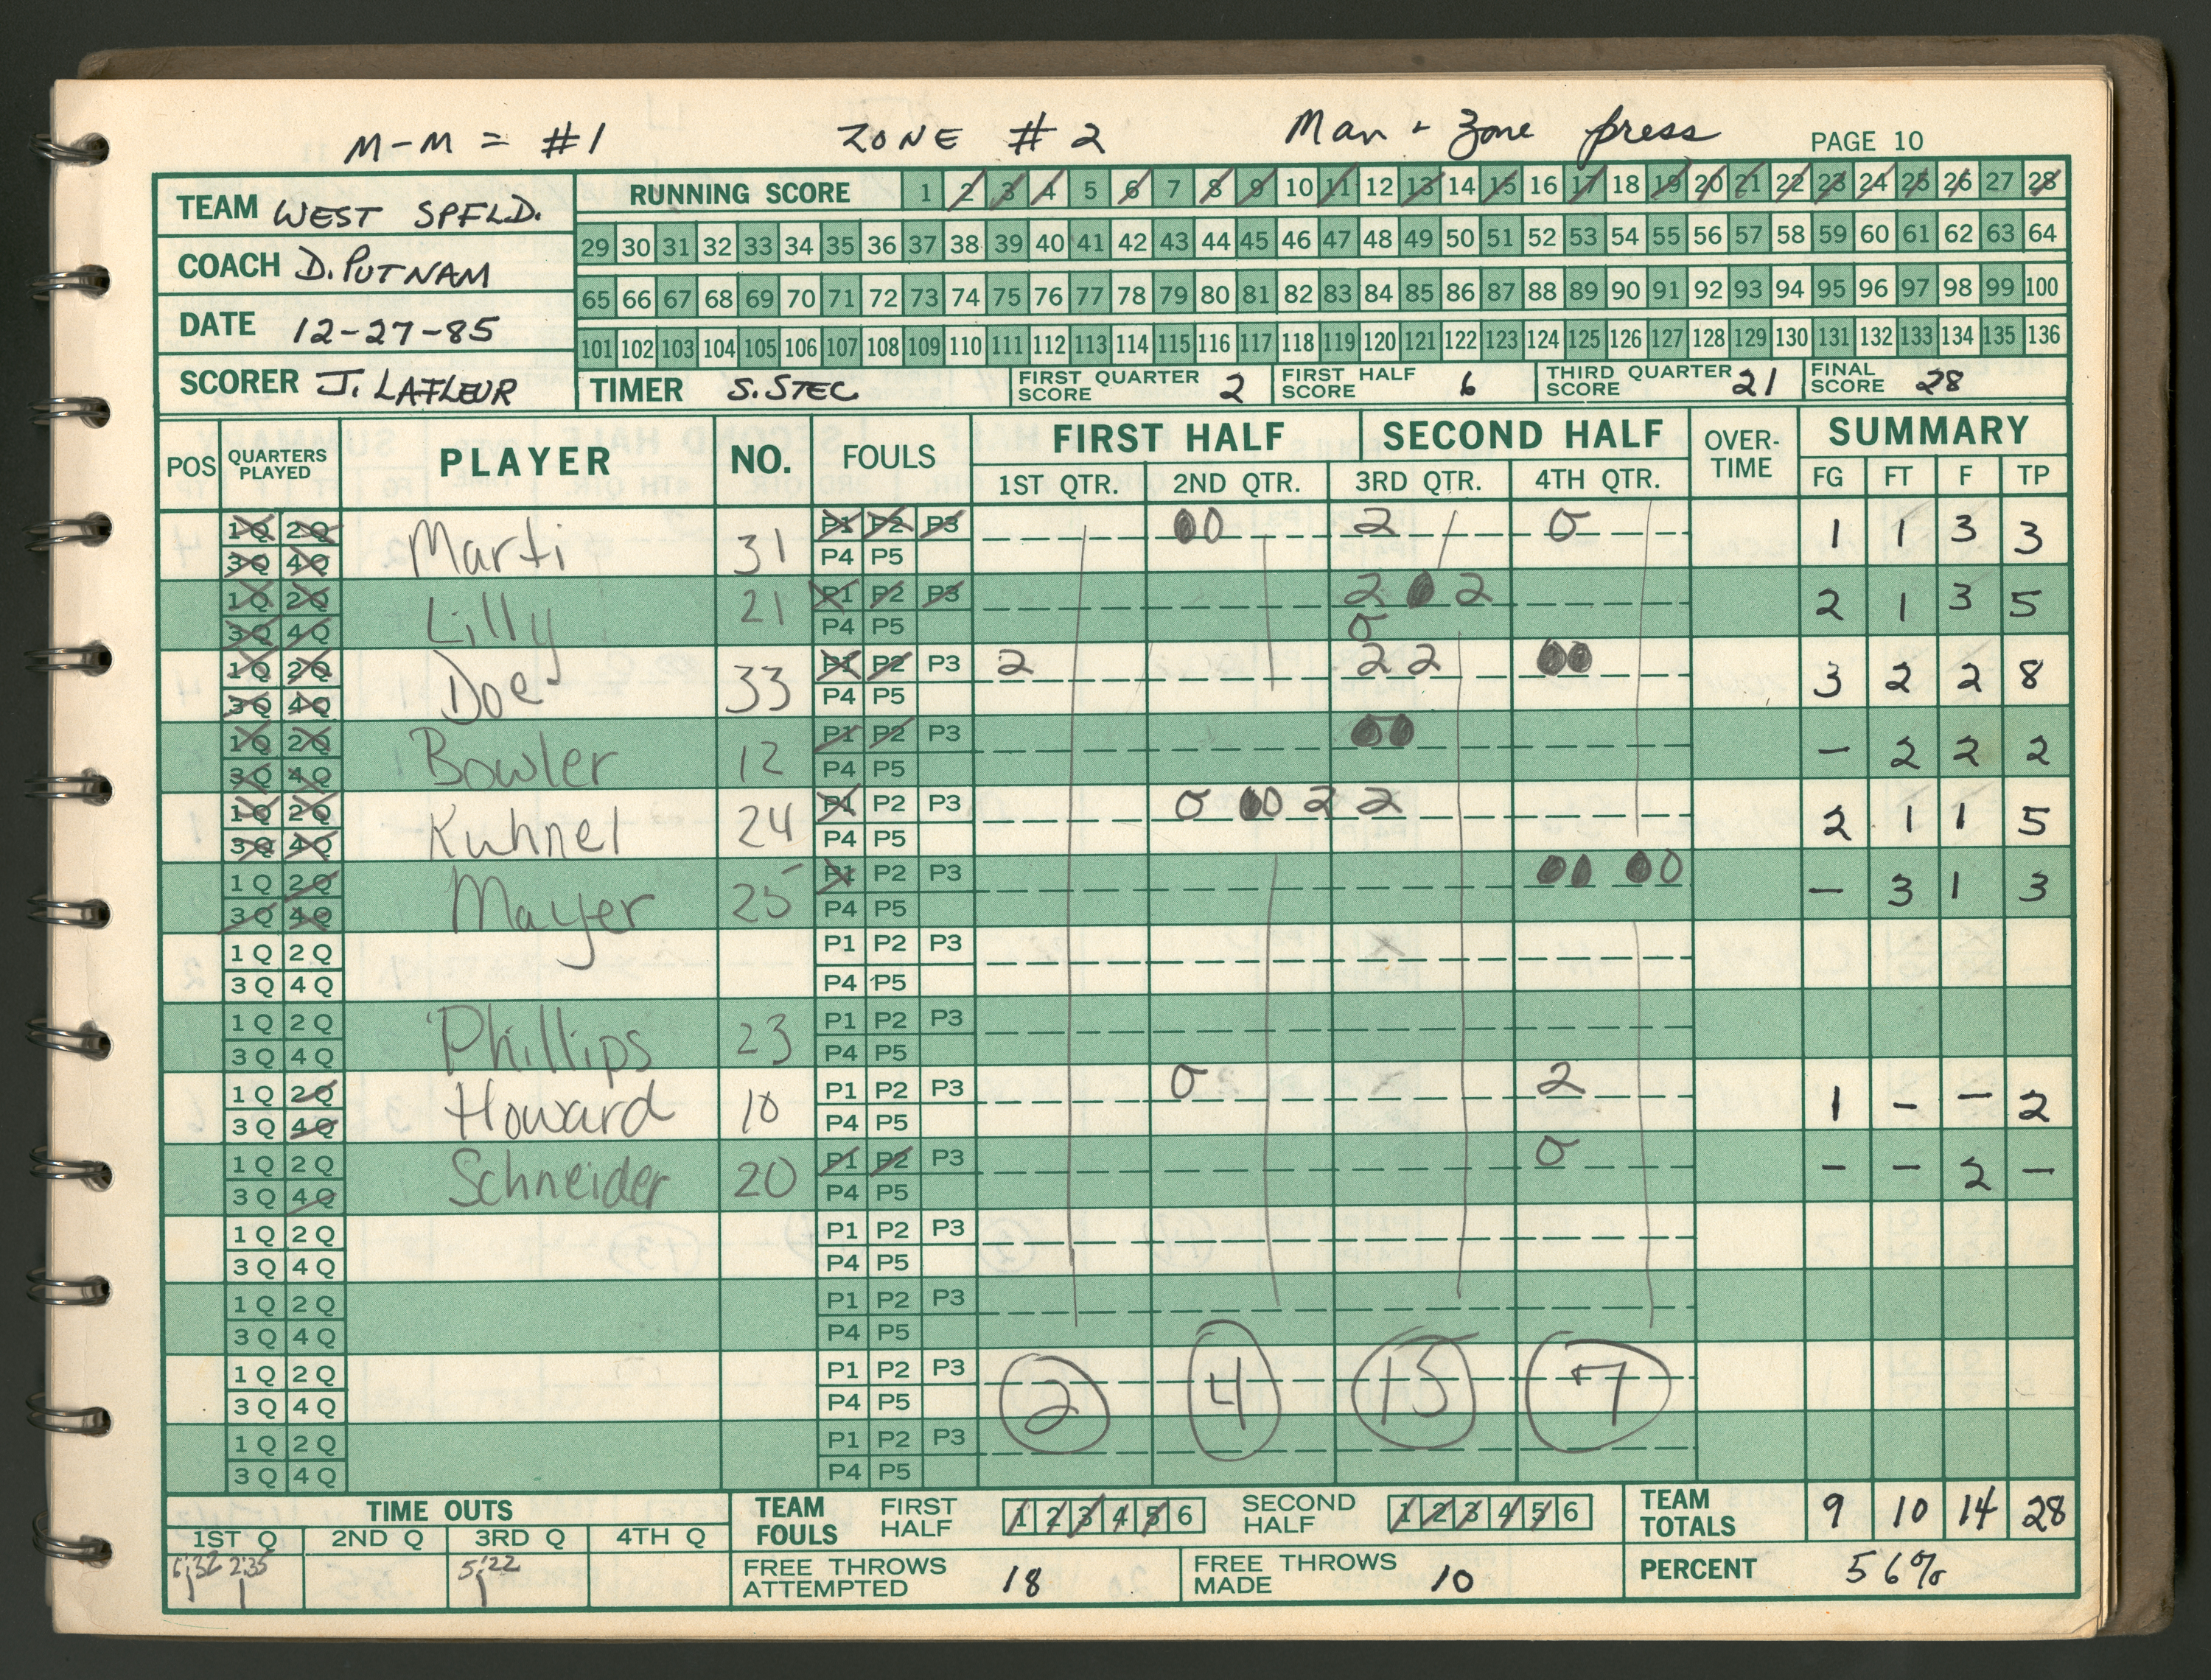 M-M = #1 ZONE #2 Man + Zone press PAGE 10
TEAM WEST SPFLD.
COACH D. PUTNAM
DATE 12-27-85
SCORER J. LAFLEUR
RUNNING SCORE 1 2 3 4 5 6 7 8 9 10 11 12 13 14 15 16 17 18 19 20 21 22 23 24 25 26 27 28
29 30 31 32 33 34 35 36 37 38 39 40 41 42 43 44 45 46 47 48 49 50 51 52 53 54 55 56 57 58 59 60 61 62 63 64
65 66 67 68 69 70 71 72 73 74 75 76 77 78 79 80 81 82 83 84 85 86 87 88 89 90 91 92 93 94 95 96 97 98 99 100
101 102 103 104 105 106 107 108 109 110 111 112 113 114 115 116 117 118 119 120 121 122 123 124 125 126 127 128 129 130 131 132 133 134 135 136
TIMER S. STEC FIRST QUARTER SCORE 2 FIRST HALF SCORE 6 THIRD QUARTER SCORE 21 FINAL SCORE 28
POS QUARTERS PLAYED PLAYER NO. FOULS FIRST HALF SECOND HALF OVER-TIME SUMMARY
1ST QTR. 2ND QTR. 3RD QTR. 4TH QTR. FG FT F TP
1Q 2Q Marti 31 P1 P2 P3 00 2 0 1 1 3 3
3Q 4Q P4 P5
1Q 2Q Lilly 21 P1 P2 P3 2 0 2 2 1 3 5
3Q 4Q P4 P5 0
1Q 2Q Doe 33 P1 P2 P3 2 2 2 00 3 2 2 8
3Q 4Q P4 P5
1Q 2Q Bowler 12 P1 P2 P3 00 - 2 2 2
3Q 4Q P4 P5
1Q 2Q Kuhnel 24 P1 P2 P3 0 00 2 2 2 1 1 5
3Q 4Q P4 P5
1Q 2Q Mayer 25 P1 P2 P3 00 00 - 3 1 3
3Q 4Q P4 P5
1Q 2Q P1 P2 P3
3Q 4Q P4 P5
1Q 2Q Phillips 23 P1 P2 P3
3Q 4Q P4 P5
1Q 2Q Howard 10 P1 P2 P3 0 2 1 - - 2
3Q 4Q P4 P5
1Q 2Q Schneider 20 P1 P2 P3 0 - - 2 -
3Q 4Q P4 P5
1Q 2Q P1 P2 P3
3Q 4Q P4 P5
1Q 2Q P1 P2 P3
3Q 4Q P4 P5
1Q 2Q P1 P2 P3 2 4 15 7
3Q 4Q P4 P5
1Q 2Q P1 P2 P3
3Q 4Q P4 P5
TIME OUTS
1ST Q 2ND Q 3RD Q 4TH Q
2:35 5:22
TEAM FOULS FIRST HALF 1 2 3 4 5 6 SECOND HALF 1 2 3 4 5 6 TEAM TOTALS 9 10 14 28
FREE THROWS ATTEMPTED 18 FREE THROWS MADE 10 PERCENT 56%